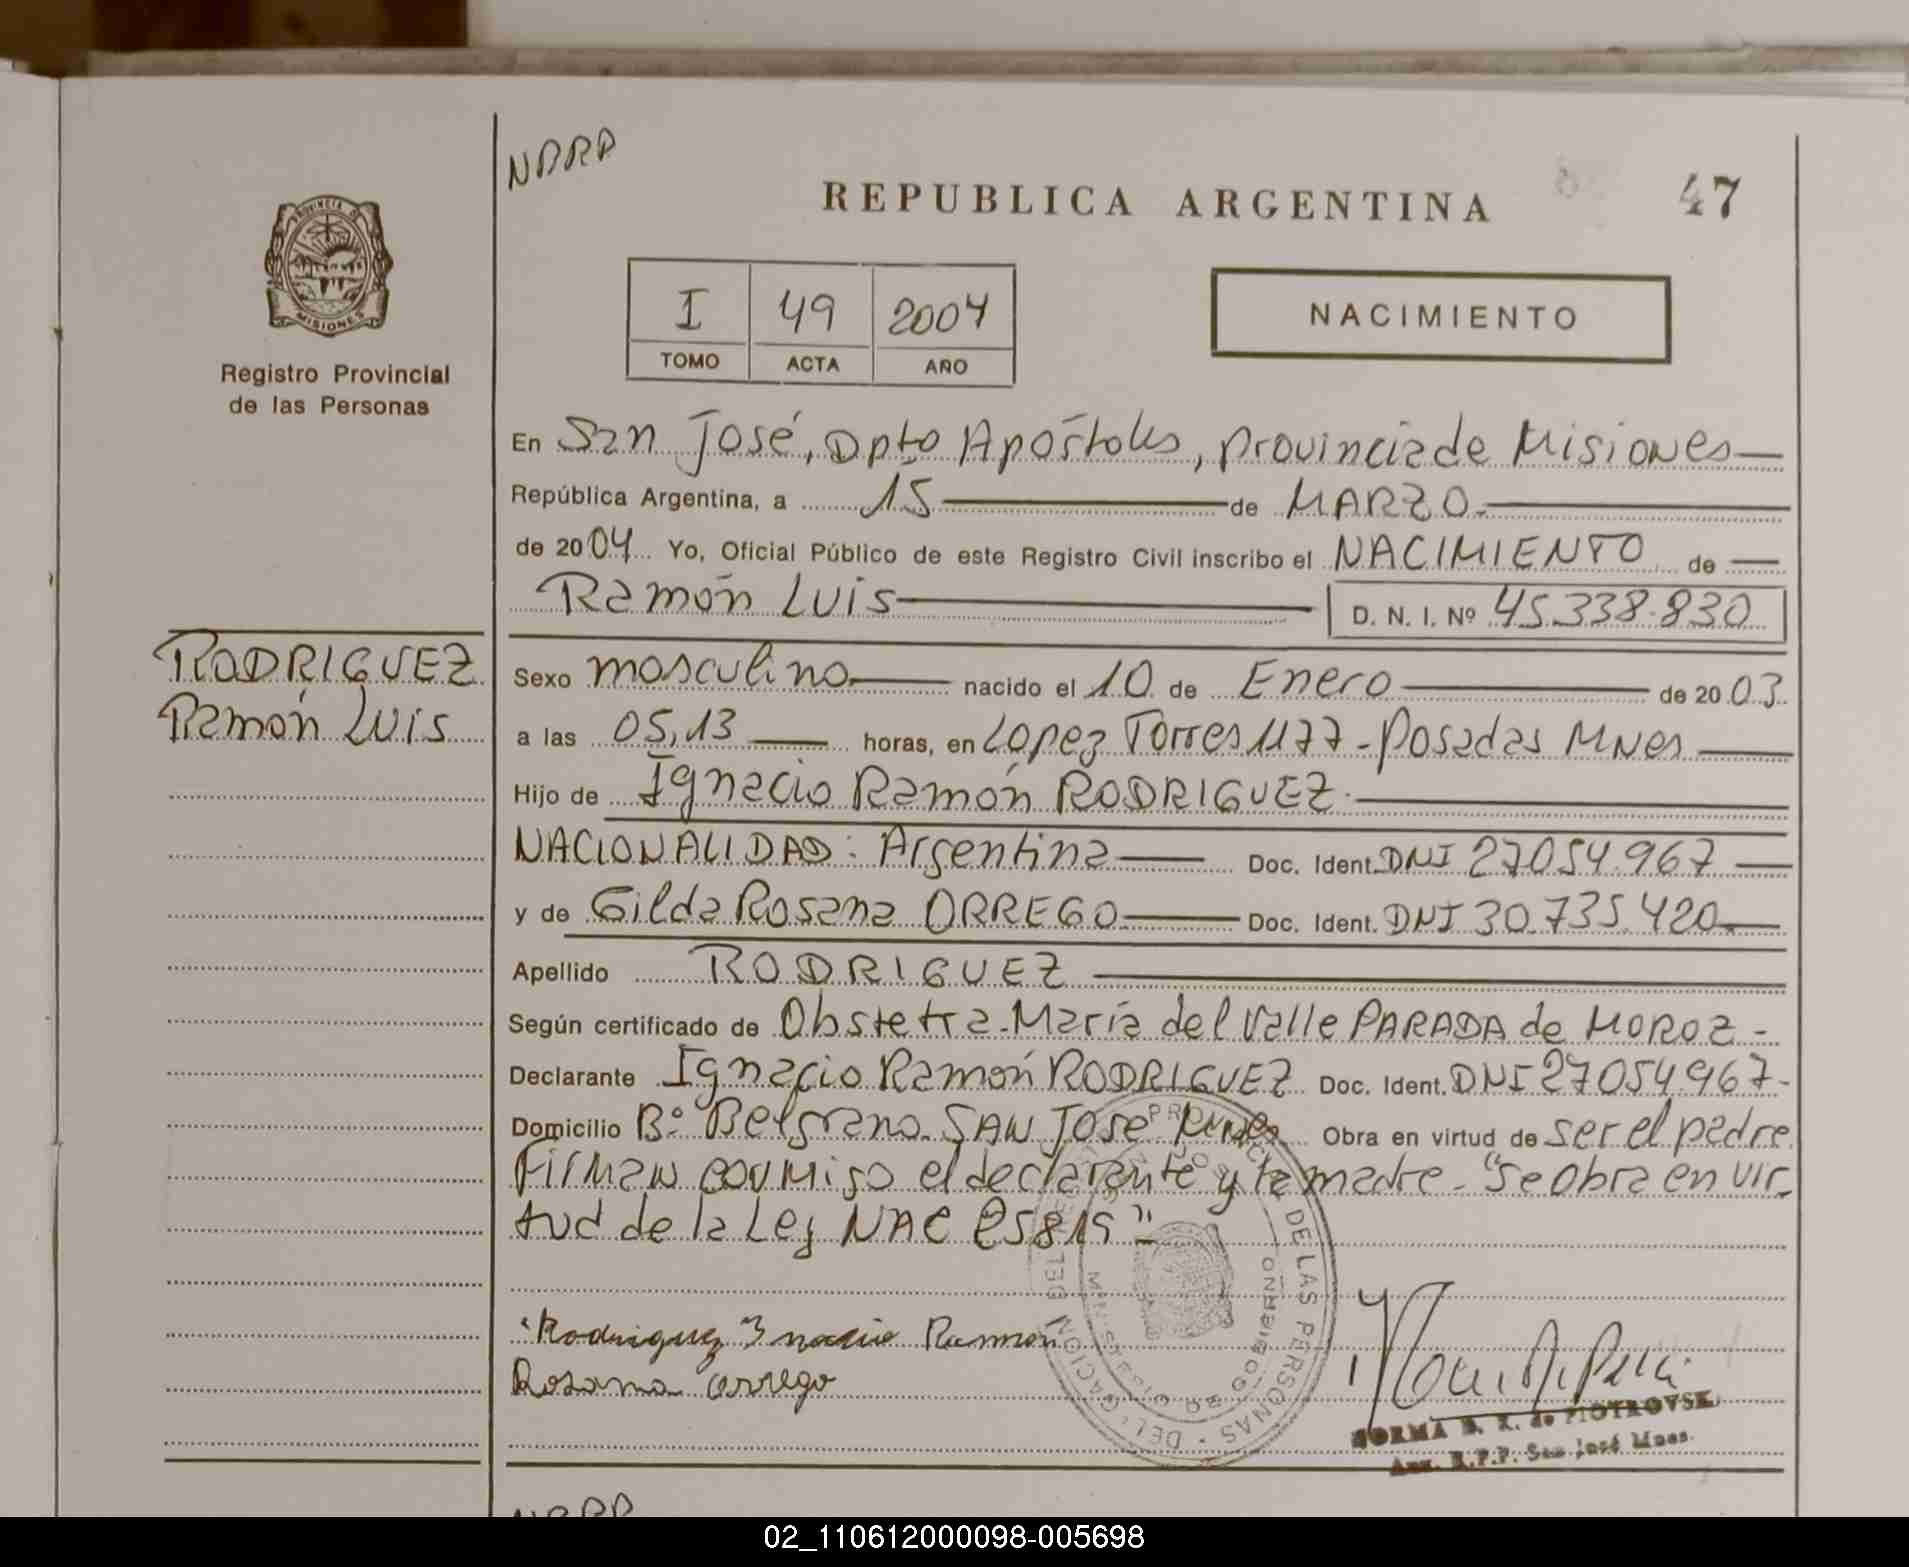 NBRP
REPUBLICA ARGENTINA
47
PROVINCIA DE
MISIONES
Registro Provincial
de las Personas
I 49 2004
TOMO ACTA AÑO
NACIMIENTO
En San José, Dpto Apóstoles, provincia de Misiones
República Argentina, a 15 de MARZO.
de 2004 Yo, Oficial Público de este Registro Civil inscribo el NACIMIENTO de
Ramón Luis D. N. I. Nº 45.338.830
RODRIGUEZ
Ramón Luis
Sexo masculino nacido el 10 de Enero de 2003
a las 05,13 horas, en Lopez Torres 1177 - Posadas Mnes
Hijo de Ignacio Ramón RODRIGUEZ.
NACIONALIDAD: Argentina Doc. Ident. DNI 27054.967
y de Gilda Rosana ORREGO Doc. Ident. DNI 30.735.420
Apellido RODRIGUEZ
Según certificado de Obstetra-María del Valle PARADA de MOROZ-
Declarante Ignacio Ramón RODRIGUEZ Doc. Ident. DNI 27054967-
Domicilio Bº Belgrano. SAN JOSE Mnes Obra en virtud de ser el padre
Firman conmigo el declarante y la madre - "Se obra en vir-
tud de la Ley NAC 25819"
Rodriguez Ignacio Ramon
Rosana orrego
NORMA B. K. de PIOTROVSKI
Aux. R.P.P. San José Mnes.
NBRP
02_110612000098-005698